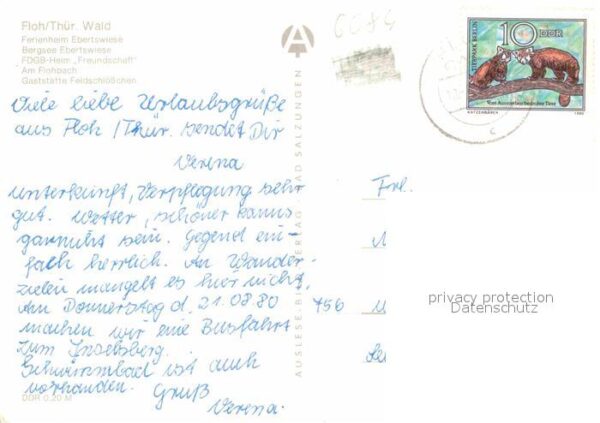 Floh/Thür. Wald
Ferienheim Ebertswiese
Bergsee Ebertswiese
FDGB-Heim „Freundschaft"
Am Flohbach
Gaststätte Feldschlößchen
6084
TIERPARK BERLIN
10 DDR
Vom Aussterben bedrohte Tiere
KATZENBÄREN 1980
c
Viele liebe Urlaubsgrüße
aus Floh /Thür. sendet Dir
Verena
Unterkunft, Verpflegung sehr
gut. Wetter, schöner kanns
garnicht sein. Gegend ein-
fach herrlich. An Wander-
zielen mangelt es hier nicht.
Am Donnerstag d. 21.08.80
machen wir eine Busfahrt
zum Inselsberg.
Schwimmbad ist auch
vorhanden. Gruß
Verena.
DDR 0,20 M
BAD SALZUNGEN
Frl.
756
privacy protection
Datenschutz